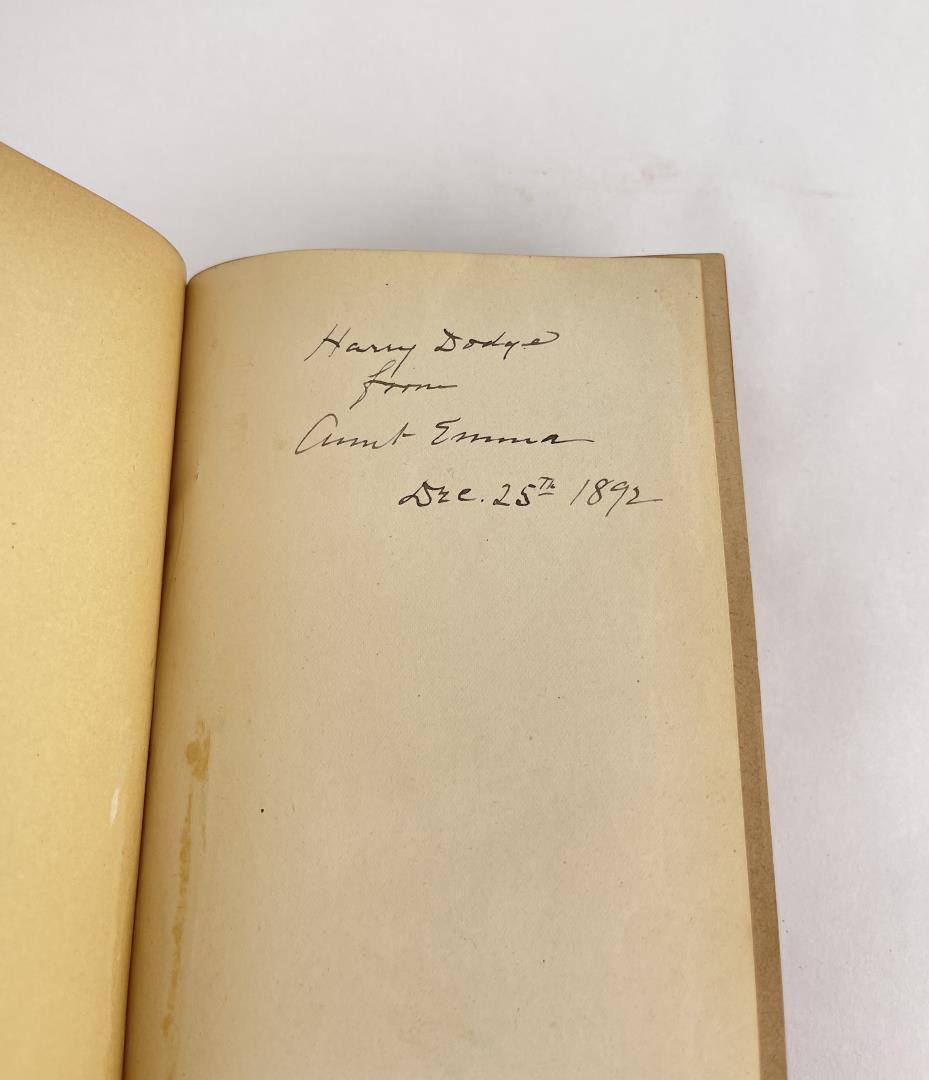 Harry Dodge
from
Aunt Emma
Dec. 25th 1892